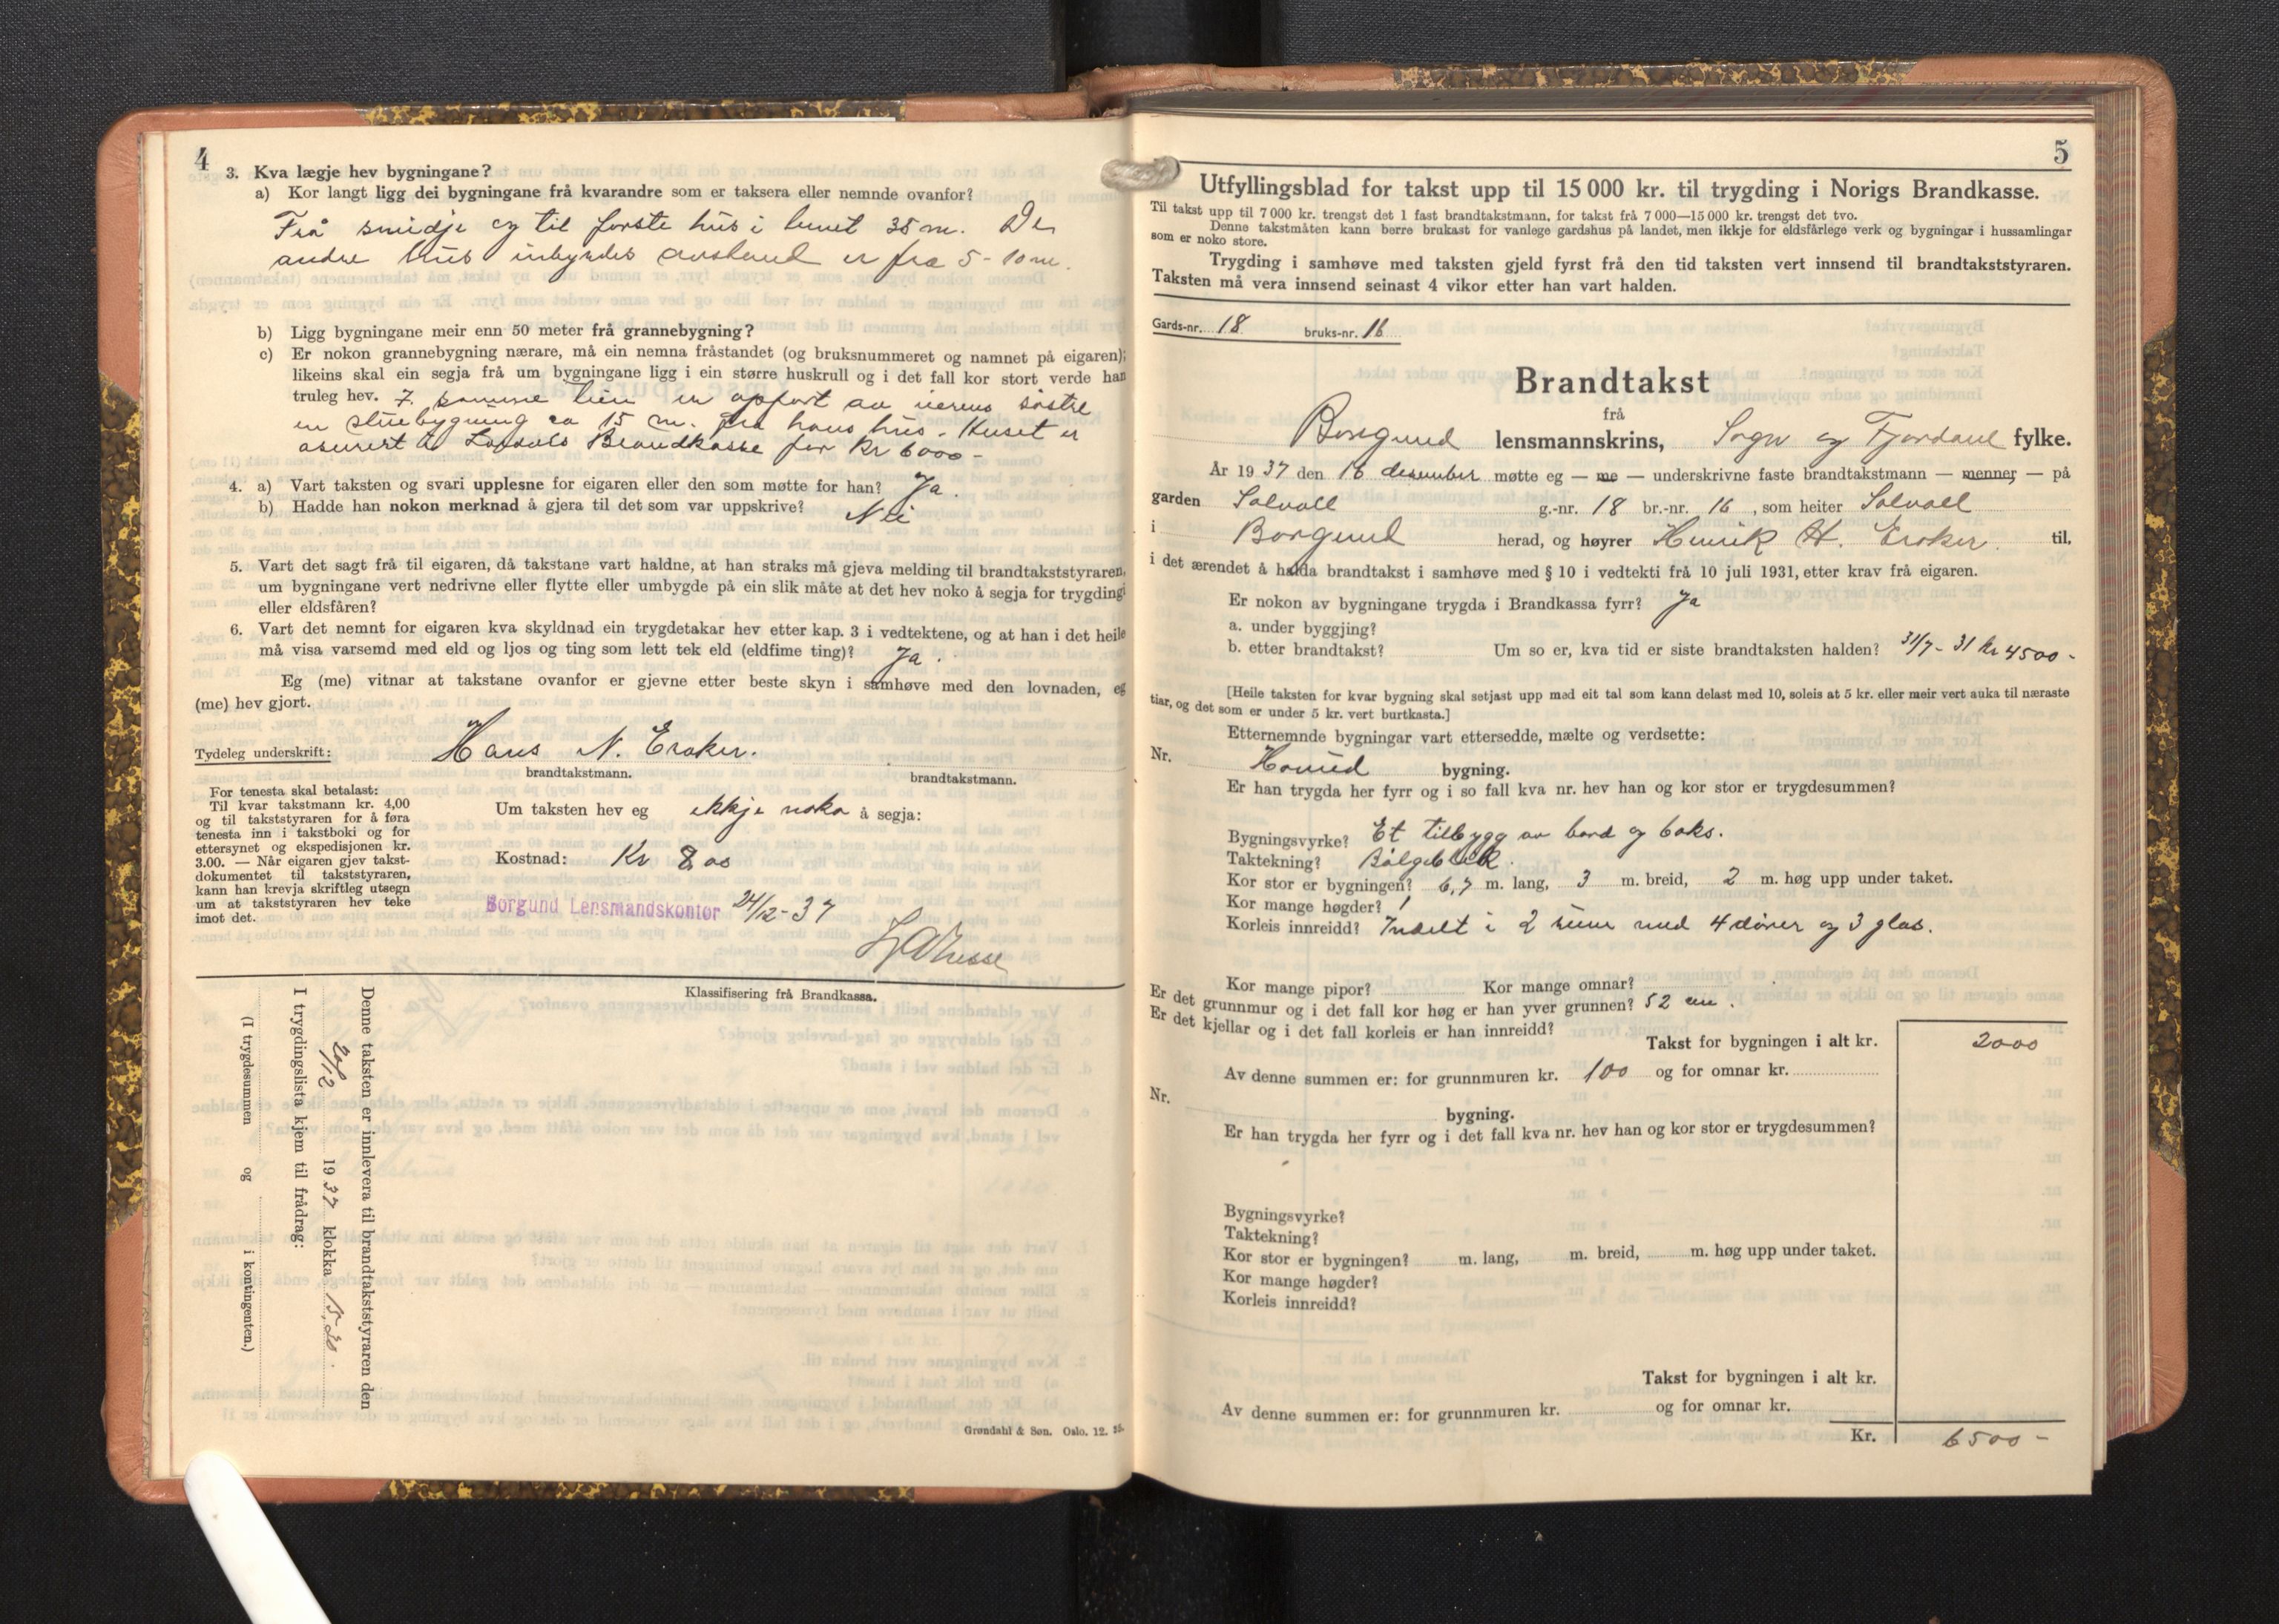 4
3. Kva lægje hev bygningane?
a) Kor langt ligg dei bygningane frå kvarandre som er taksera eller nemnde ovanfor?
Frå smidje og til første hus i tunet 35 m. De
andre hus inbyrdes avstand er fra 5-10 m.
b) Ligg bygningane meir enn 50 meter frå grannebygning?
c) Er nokon grannebygning nærare, må ein nemna fråstandet (og bruksnummeret og namnet på eigaren);
likeins skal ein segja frå um bygningane ligg i ein større huskrull og i det fall kor stort verde han
truleg hev. I samme tun er oppført av søstre
en stuebygning ca 15 m. fra hans hus. Huset er
asurert i Brandkasse for Kr 6000-
4. a) Vart taksten og svari upplesne for eigaren eller den som møtte for han? Ja.
b) Hadde han nokon merknad å gjera til det som var uppskrive? Nei
5. Vart det sagt frå til eigaren, då takstane vart haldne, at han straks må gjeva melding til brandtakststyraren,
um bygningane vert nedrivne eller flytte eller umbygde på ein slik måte at det hev noko å segja for trygding
eller eldsfåren?
6. Vart det nemnt for eigaren kva skyldnad ein trygdetakar hev etter kap. 3 i vedtektene, og at han i det heile
må visa varsemd med eld og ljos og ting som lett tek eld (eldfime ting)? Ja.
Eg (me) vitnar at takstane ovanfor er gjevne etter beste skyn i samhøve med den lovnaden, eg
(me) hev gjort.
Tydeleg underskrift: Hans N. Eraker.
brandtakstmann. brandtakstmann.
For tenesta skal betalast:
Til kvar takstmann kr. 4,00
og til takststyraren for å føra
tenesta inn i takstboki og for
ettersynet og ekspedisjonen kr.
3.00. — Når eigaren gjev takst-
dokumentet til takststyraren,
kann han krevja skriftleg utsegn
um at takststyraren hev teke
imot det.
Um taksten hev eg ikkje noko å segja:
Kostnad: Kr 8,00
Borgund Lensmandskontor 24/12-37
Klassifisering frå Brandkassa.
Denne taksten er innlevera til brandtakststyraren den
20/12 1937 klokka 15,30.
I trygdingslista kjem til frådrag:
(I trygdesummen og i kontingenten.)
Grøndahl & Søn. Oslo. 12. 35.
5
Utfyllingsblad for takst upp til 15 000 kr. til trygding i Norigs Brandkasse.
Til takst upp til 7 000 kr. trengst det 1 fast brandtakstmann, for takst frå 7 000—15 000 kr. trengst det tvo.
Denne takstmåten kann berre brukast for vanlege gardshus på landet, men ikkje for eldsfårlege verk og bygningar i hussamlingar
som er noko store.
Trygding i samhøve med taksten gjeld fyrst frå den tid taksten vert innsend til brandtakststyraren.
Taksten må vera innsend seinast 4 vikor etter han vart halden.
Gards-nr. 18 bruks-nr. 16
Brandtakst
frå
Borgund lensmannskrins, Sogn og Fjordane fylke.
År 1937 den 16 desember møtte eg — me — underskrivne faste brandtakstmann — menner — på
garden Solvoll g.-nr. 18 br.-nr. 16, som heiter Solvoll
i Borgund herad, og høyrer Henrik H. Eraker. til,
i det ærendet å halda brandtakst i samhøve med § 10 i vedtekti frå 10 juli 1931, etter krav frå eigaren.
Er nokon av bygningane trygda i Brandkassa fyrr? Ja
a. under byggjing?
b. etter brandtakst? Um so er, kva tid er siste brandtaksten halden? 31/7-31 Kr 4500-
[Heile taksten for kvar bygning skal setjast upp med eit tal som kann delast med 10, soleis at 5 kr. eller meir vert auka til næraste
tiar, og det som er under 5 kr. vert burtkasta.]
Etternemnde bygningar vart ettersedde, mælte og verdsette:
Nr. Hovud bygning.
Er han trygda her fyrr og i so fall kva nr. hev han og kor stor er trygdesummen?
Bygningsvyrke? Et tilbygg av bord og boks.
Taktekning? Bølgeblikk.
Kor stor er bygningen? 6,7 m. lang, 3 m. breid, 2 m. høg upp under taket.
Kor mange høgder? 1
Korleis innreidd? Indelt i 2 rum med 4 dører og 3 glas.
Kor mange pipor? Kor mange omnar?
Er det grunnmur og i det fall kor høg er han yver grunnen? 52 cm.
Er det kjellar og i det fall korleis er han innreidd?
Takst for bygningen i alt kr. 2000
Av denne summen er: for grunnmuren kr. 100 og for omnar kr.
Nr. bygning.
Er han trygda her fyrr og i det fall kva nr. hev han og kor stor er trygdesummen?
Bygningsvyrke?
Taktekning?
Kor stor er bygningen? m. lang, m. breid, m. høg upp under taket.
Kor mange høgder?
Korleis innreidd?
Takst for bygningen i alt kr.
Av denne summen er: for grunnmuren kr. og for omnar kr.
Kr. 6500-